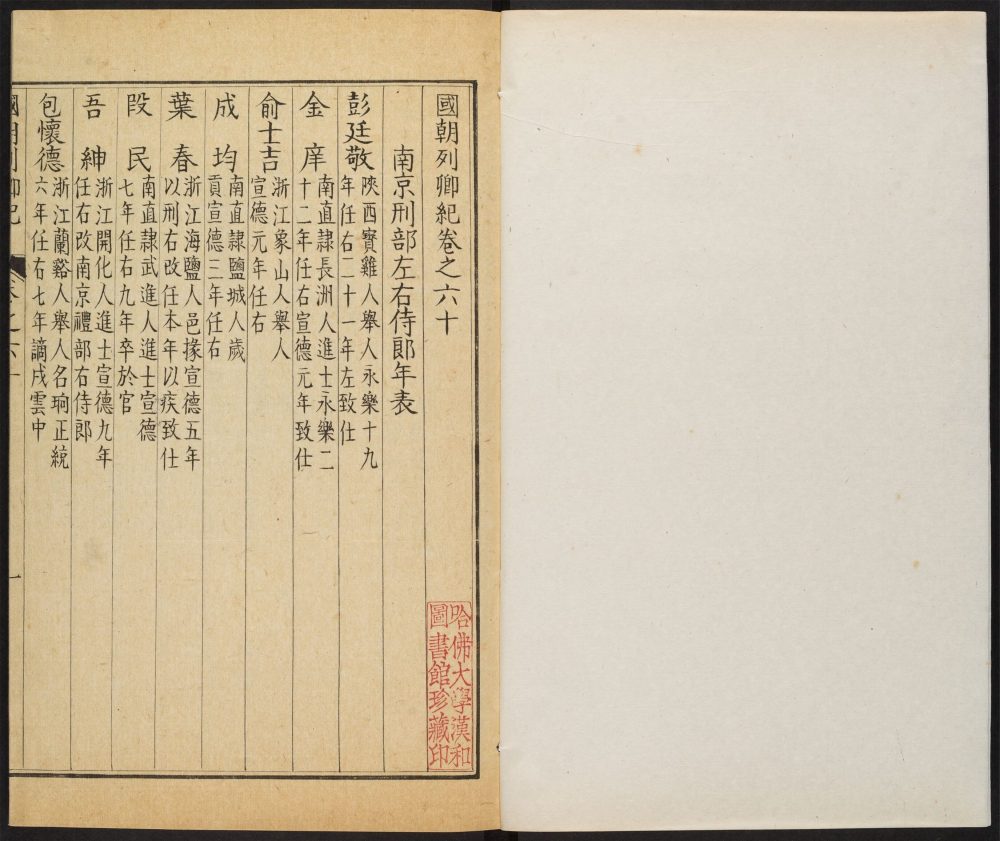 國朝列卿紀卷之六十
南京刑部左右侍郎年表
彭廷敬
陝西寳雞人舉人永樂十九
年任右二十一年左致仕
金庠
南直隷長洲人進士永樂二
十二年任右宣德元年致仕
俞士吉
浙江象山人舉人
宣德元年任右
成均
南直隷鹽城人歲
貢宣德三年任右
葉春
浙江海鹽人邑掾宣德五年
以刑右改任本年以疾致仕
段民
南直隷武進人進士宣德
七年任右九年卒於官
吾紳
浙江開化人進士宣德九年
任右改南京禮部右侍郎
包懷德
浙江蘭谿人舉人名珦正統
六年任右七年謫戍雲中
國朝列卿紀
卷之六十
一
哈佛大學漢和
圖書館珍藏印